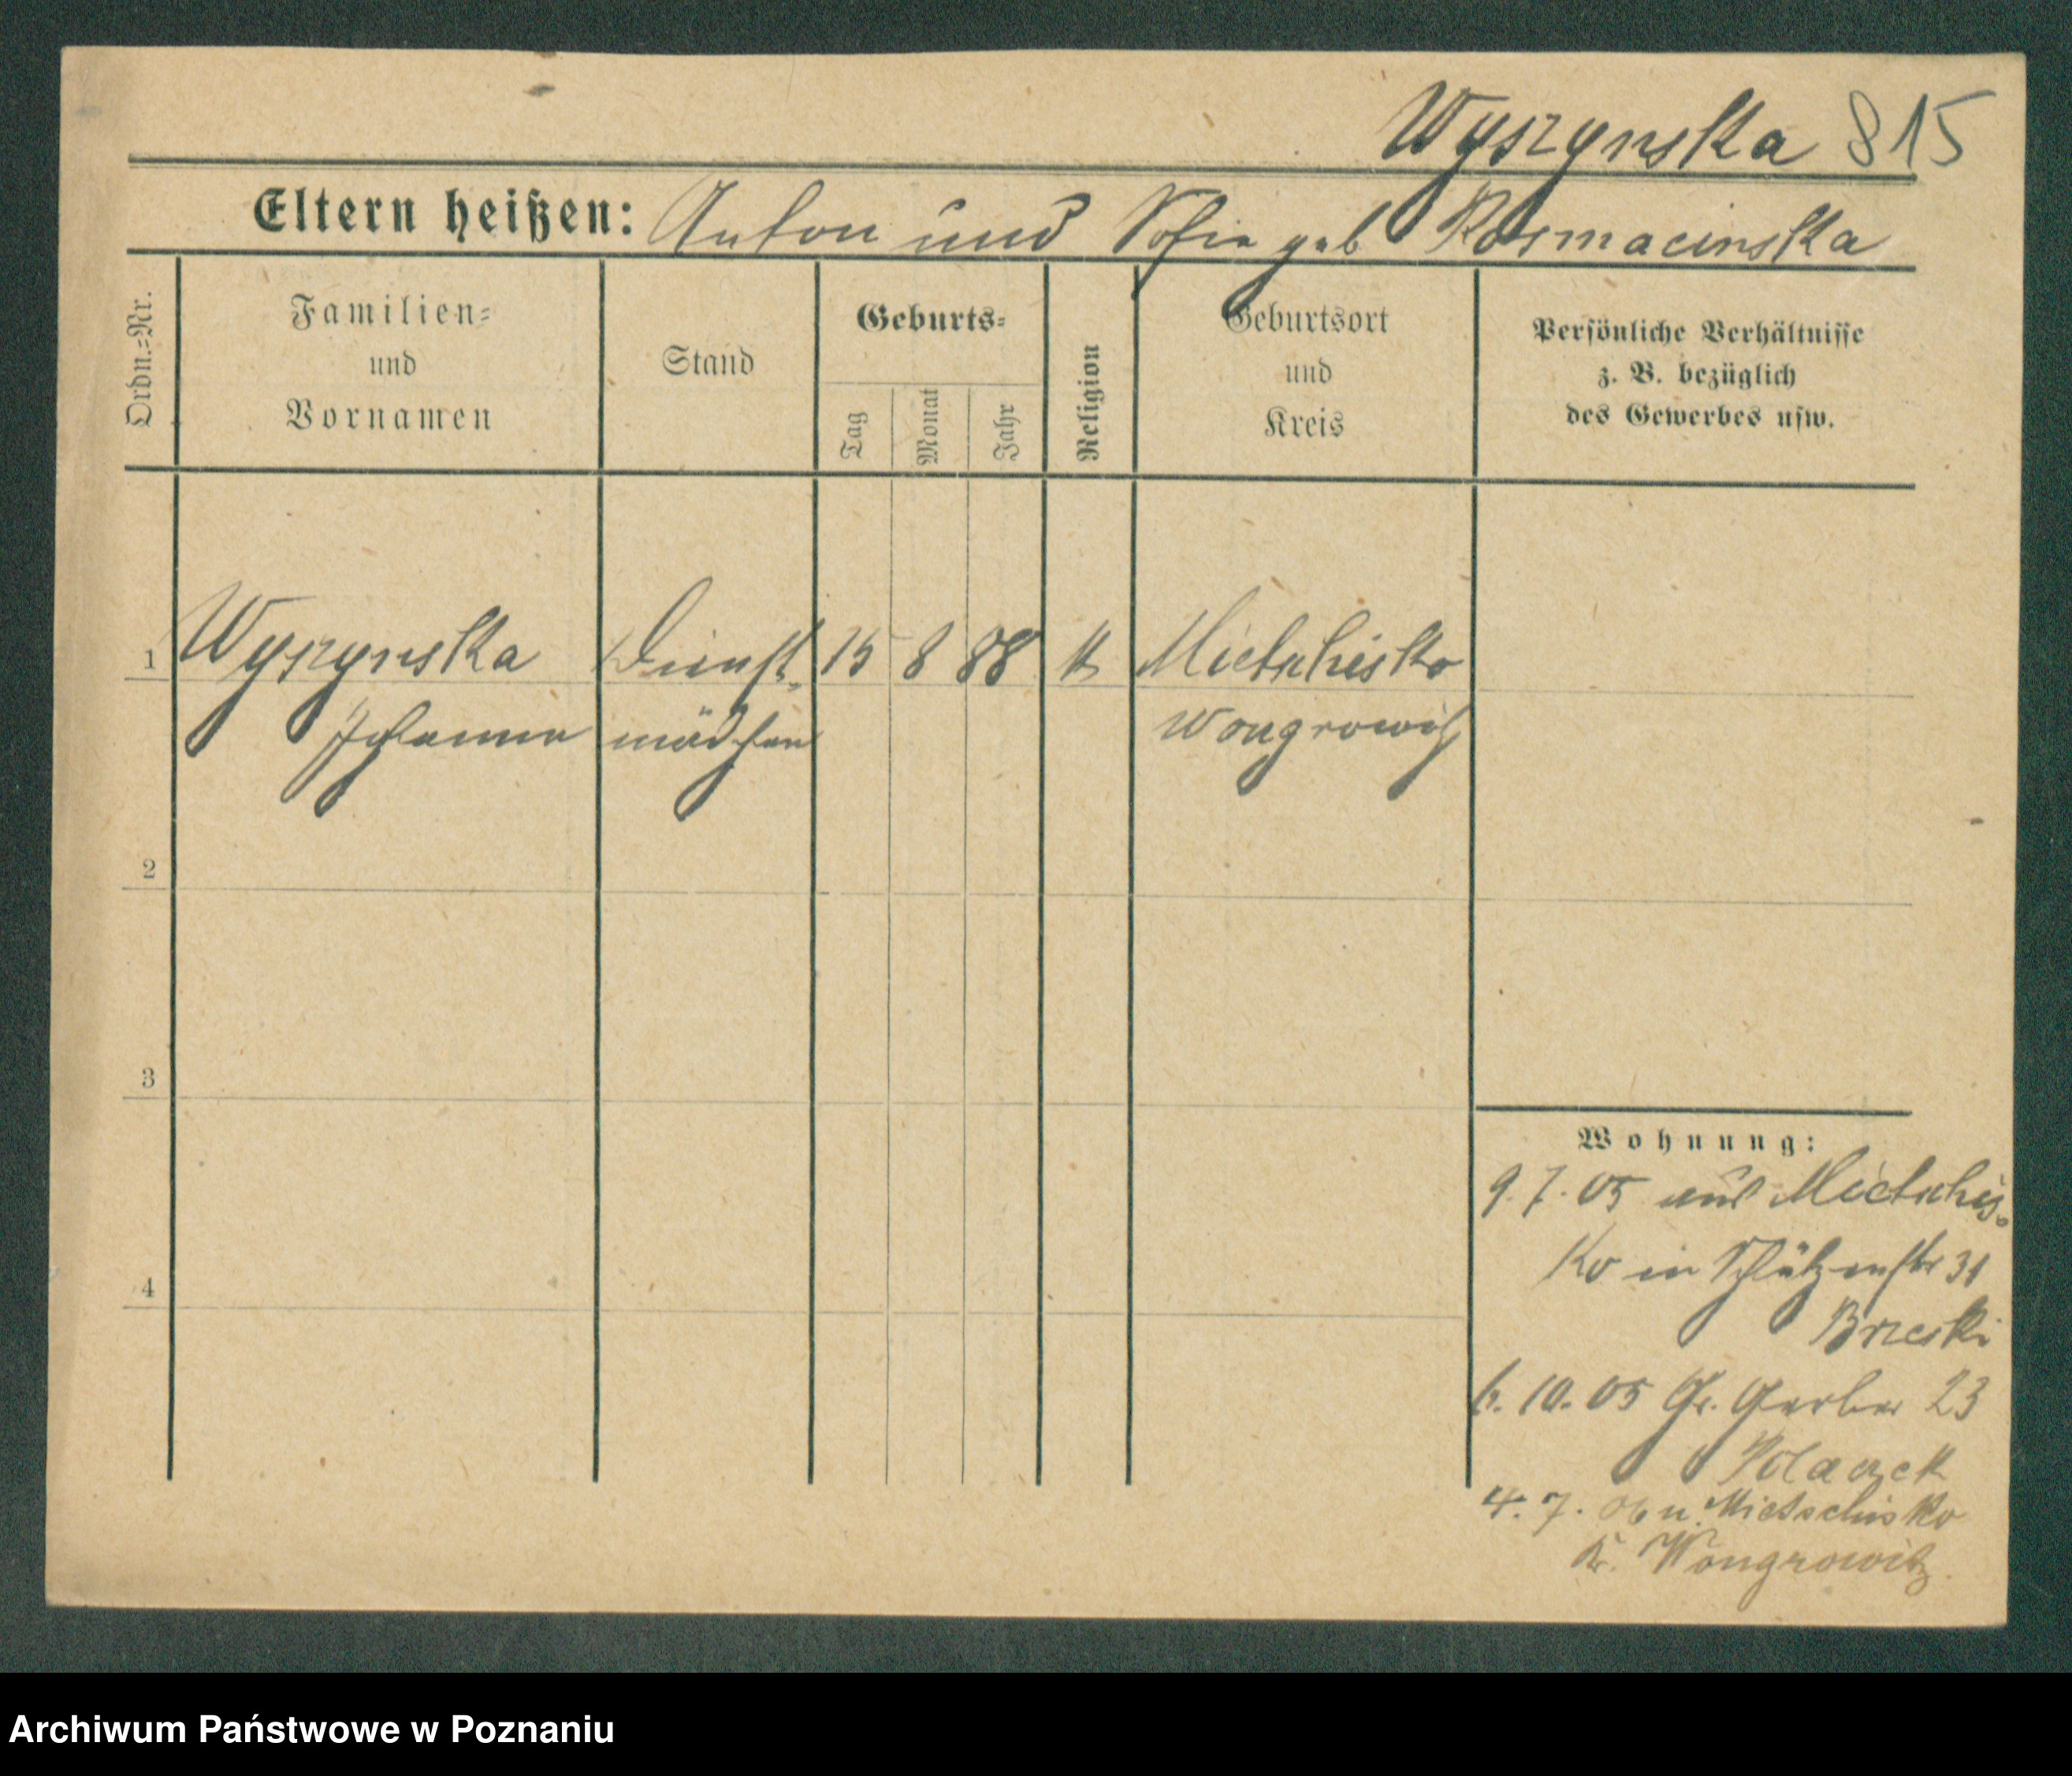 Wyszynska 815
Eltern heißen: Anton und Sofie geb
Ordn.=Nr.
Familien=
und
Vornamen
Stand
Geburts=
Tag
Monat
Jahr
Religion
Geburtsort
und
Kreis
Persönliche Verhältnisse
z. B. bezüglich
des Gewerbes usw.
1 Wyszynska Dienst= 15 8 88 k Mietschisko
Johanna mädchen Wongrowitz
2
3
4
Wohnung:
9.7.05 aus Mietschis=
ko in Schützenstr 31
Brzeski
6.10.05 Gr. Gerber 23
4.7.06 n. Mietschisko
Kr. Wongrowitz
Archiwum Państwowe w Poznaniu